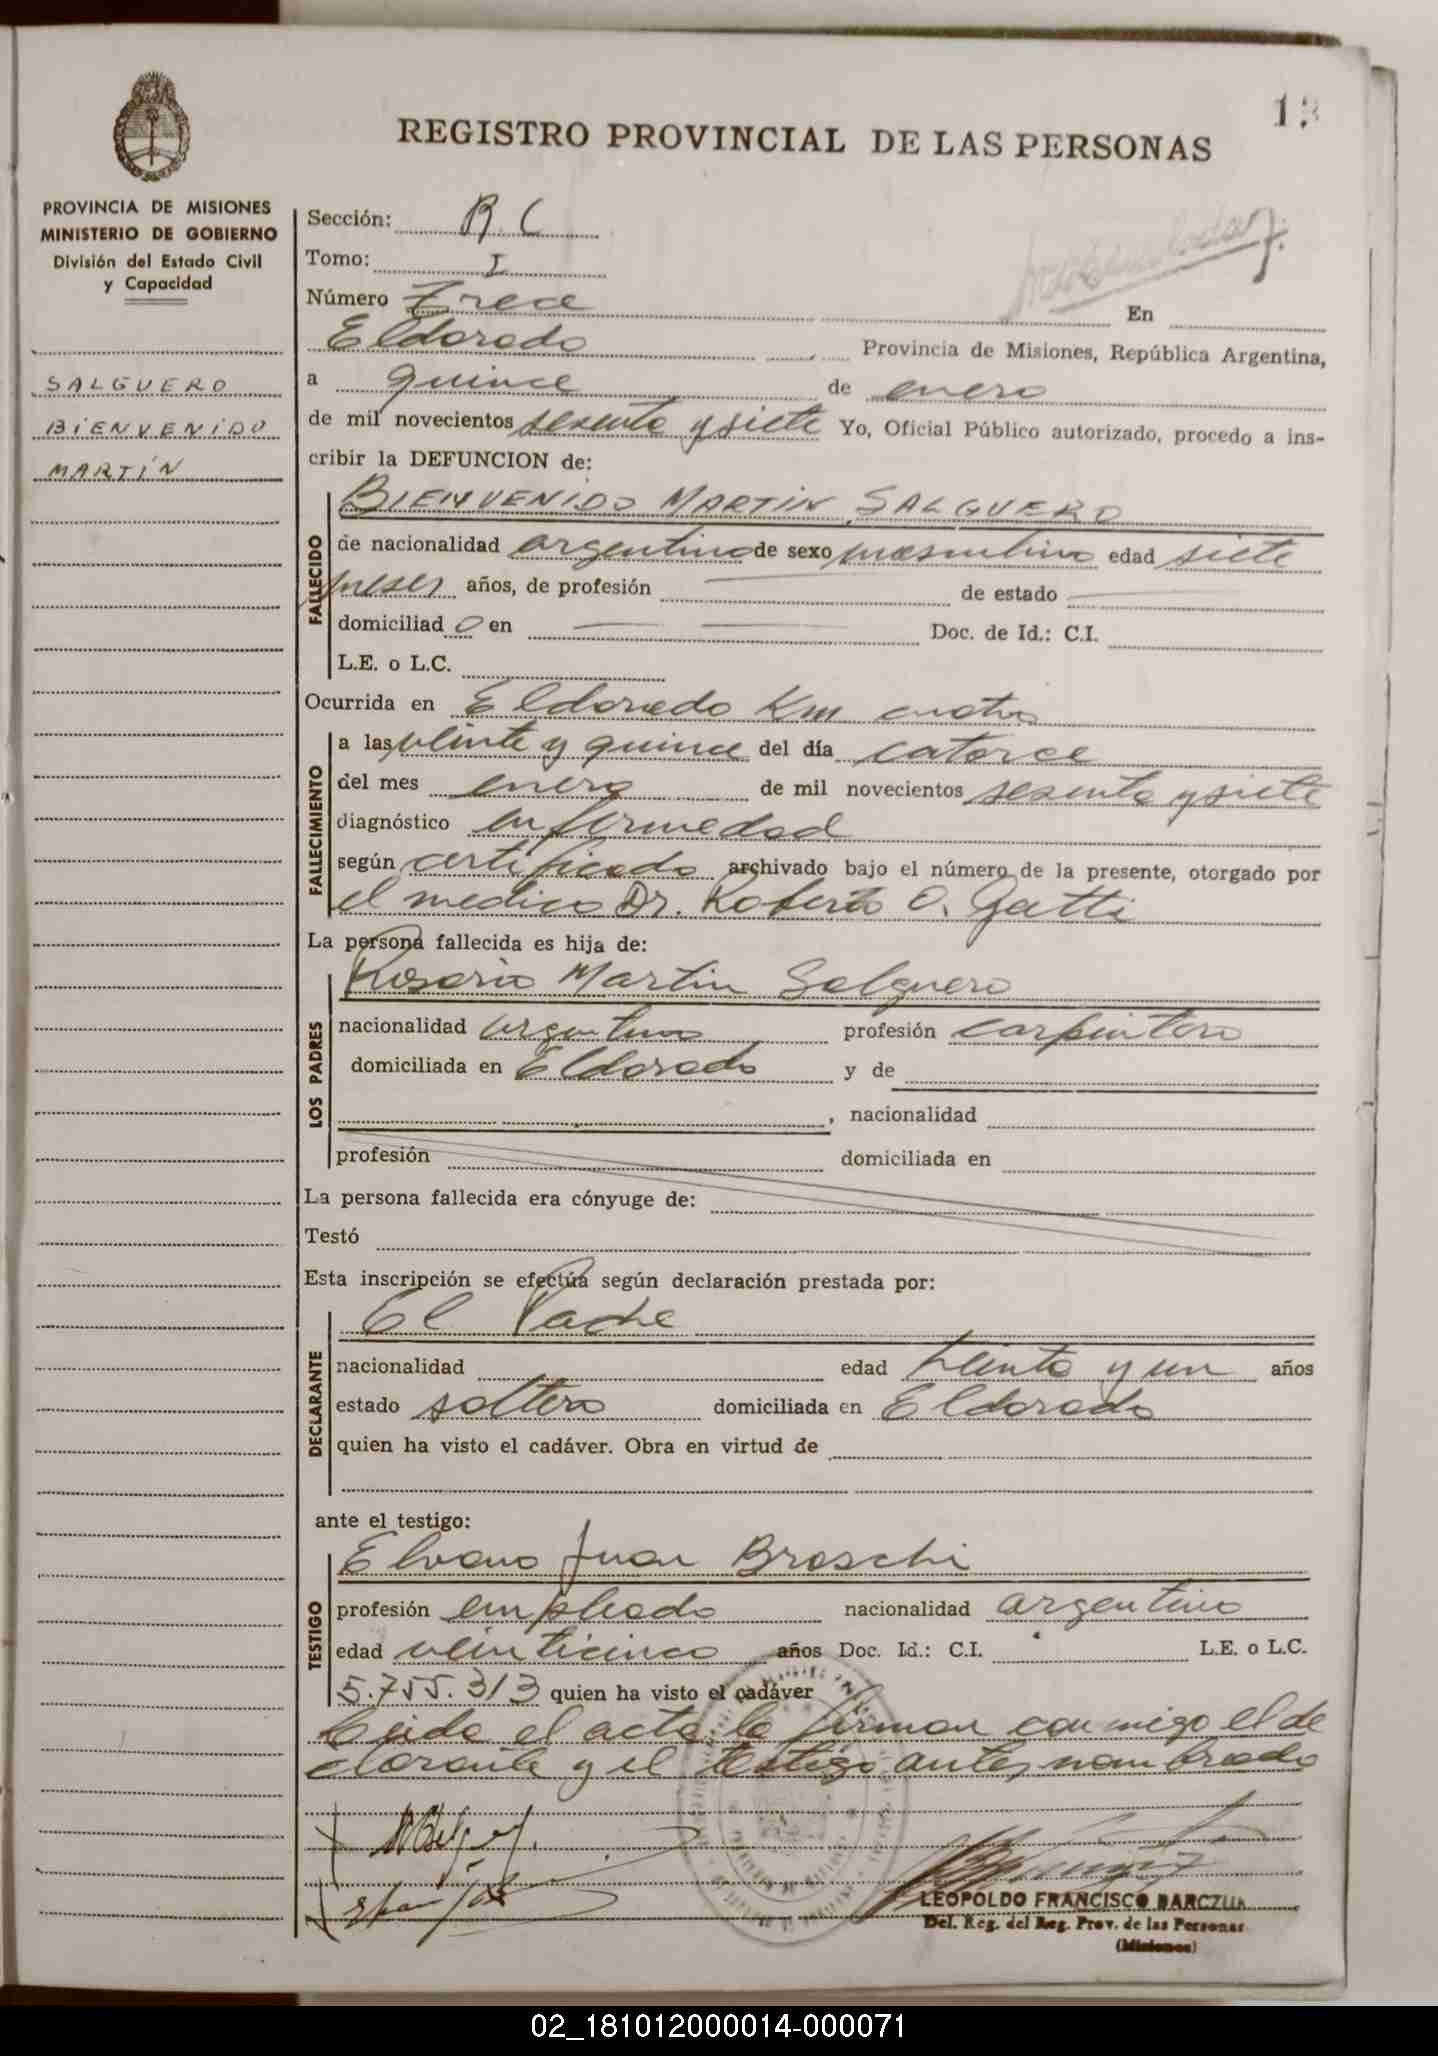 13
REGISTRO PROVINCIAL DE LAS PERSONAS
PROVINCIA DE MISIONES
MINISTERIO DE GOBIERNO
División del Estado Civil
y Capacidad
SALGUERO
BIENVENIDO
MARTÍN
Sección: B. C
Tomo: I
Número Trece En
Eldorado Provincia de Misiones, República Argentina,
a quince de enero
de mil novecientos sesenta y siete Yo, Oficial Público autorizado, procedo a ins-
cribir la DEFUNCION de:
FALLECIDO
BIENVENIDO MARTÍN SALGUERO
de nacionalidad argentino de sexo masculino edad siete
meses años, de profesión de estado
domiciliad o en Doc. de Id.: C.I.
L.E. o L.C.
Ocurrida en Eldorado Km cuatro
FALLECIMIENTO
a las veinte y quince del día catorce
del mes enero de mil novecientos sesenta y siete
diagnóstico enfermedad
según certificado archivado bajo el número de la presente, otorgado por
el medico Dr. Roberto O. Gatti
La persona fallecida es hija de:
LOS PADRES
Rosario Martin Salguero
nacionalidad argentino profesión carpintero
domiciliada en Eldorado y de
, nacionalidad
profesión domiciliada en
La persona fallecida era cónyuge de:
Testó
Esta inscripción se efectúa según declaración prestada por:
DECLARANTE
El Padre
nacionalidad edad treinta y un años
estado soltero domiciliada en Eldorado
quien ha visto el cadáver. Obra en virtud de
ante el testigo:
TESTIGO
Elvano Juan Broschi
profesión empleado nacionalidad argentino
edad veinticinco años Doc. Id.: C.I. L.E. o L.C.
5.755.313 quien ha visto el cadáver
Leida el acta la firman conmigo el de
clarante y el testigo antes nombrado
LEOPOLDO FRANCISCO BARCZUK
Del. Reg. del Reg. Prov. de las Personas
(Misiones)
02_181012000014-000071